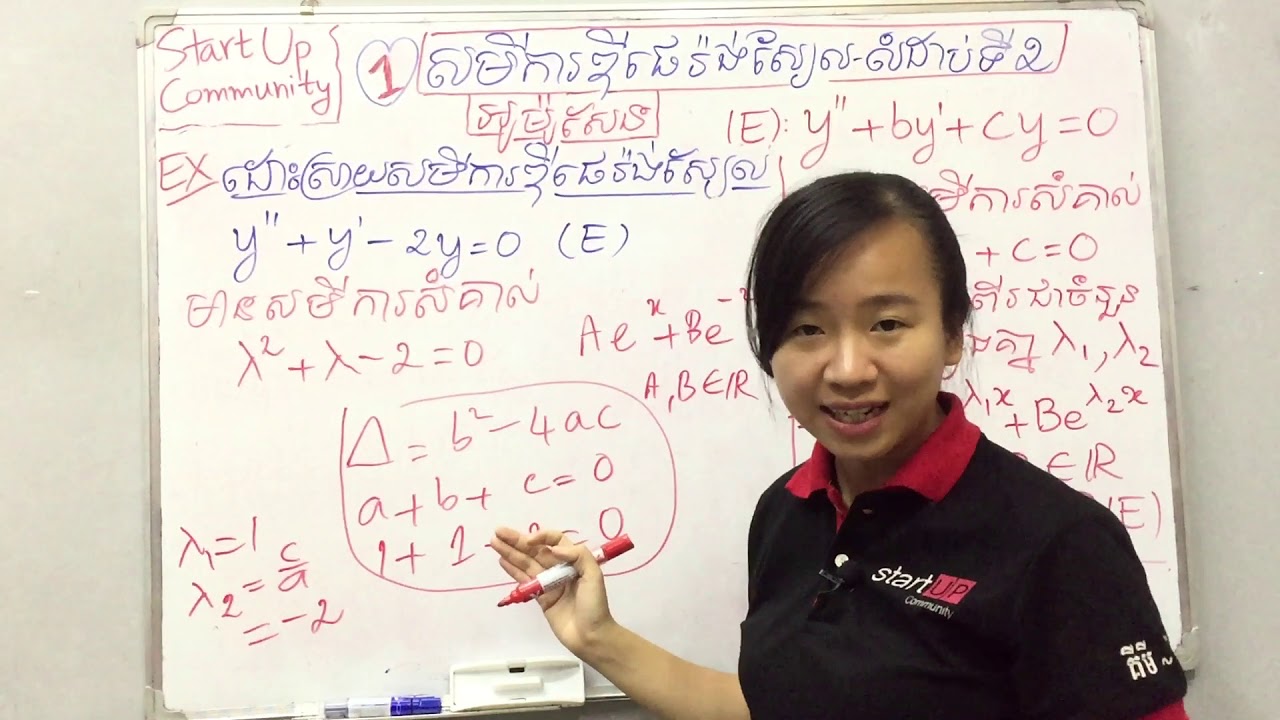 Start Up
Community
1 សមីការឌីផេរ៉ង់ស្យែលលំដាប់ទី២
អូម៉ូសែន
(E): y'' + by' + cy = 0
EX ដោះស្រាយសមីការឌីផេរ៉ង់ស្យែល
y'' + y' - 2y = 0 (E)
មានសមីការសំគាល់
λ² + λ - 2 = 0
Δ = b² - 4ac
a + b + c = 0
1 + 1 - = 0
λ₁ = 1
λ₂ = c/a
= -2
Ae^x + Be^-
A, B ∈ ℝ
មីការសំគាល់
+ c = 0
ពីរជាចំនួន
គ្នា λ₁, λ₂
λ₁x + Be^λ₂x
∈ ℝ
(E)
startUP
Community
គីមី